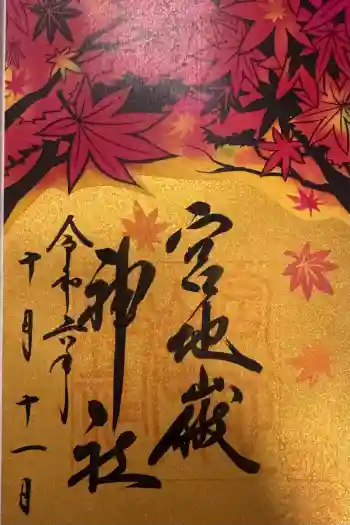 宮地嶽
神社
令和六年
十月十一日